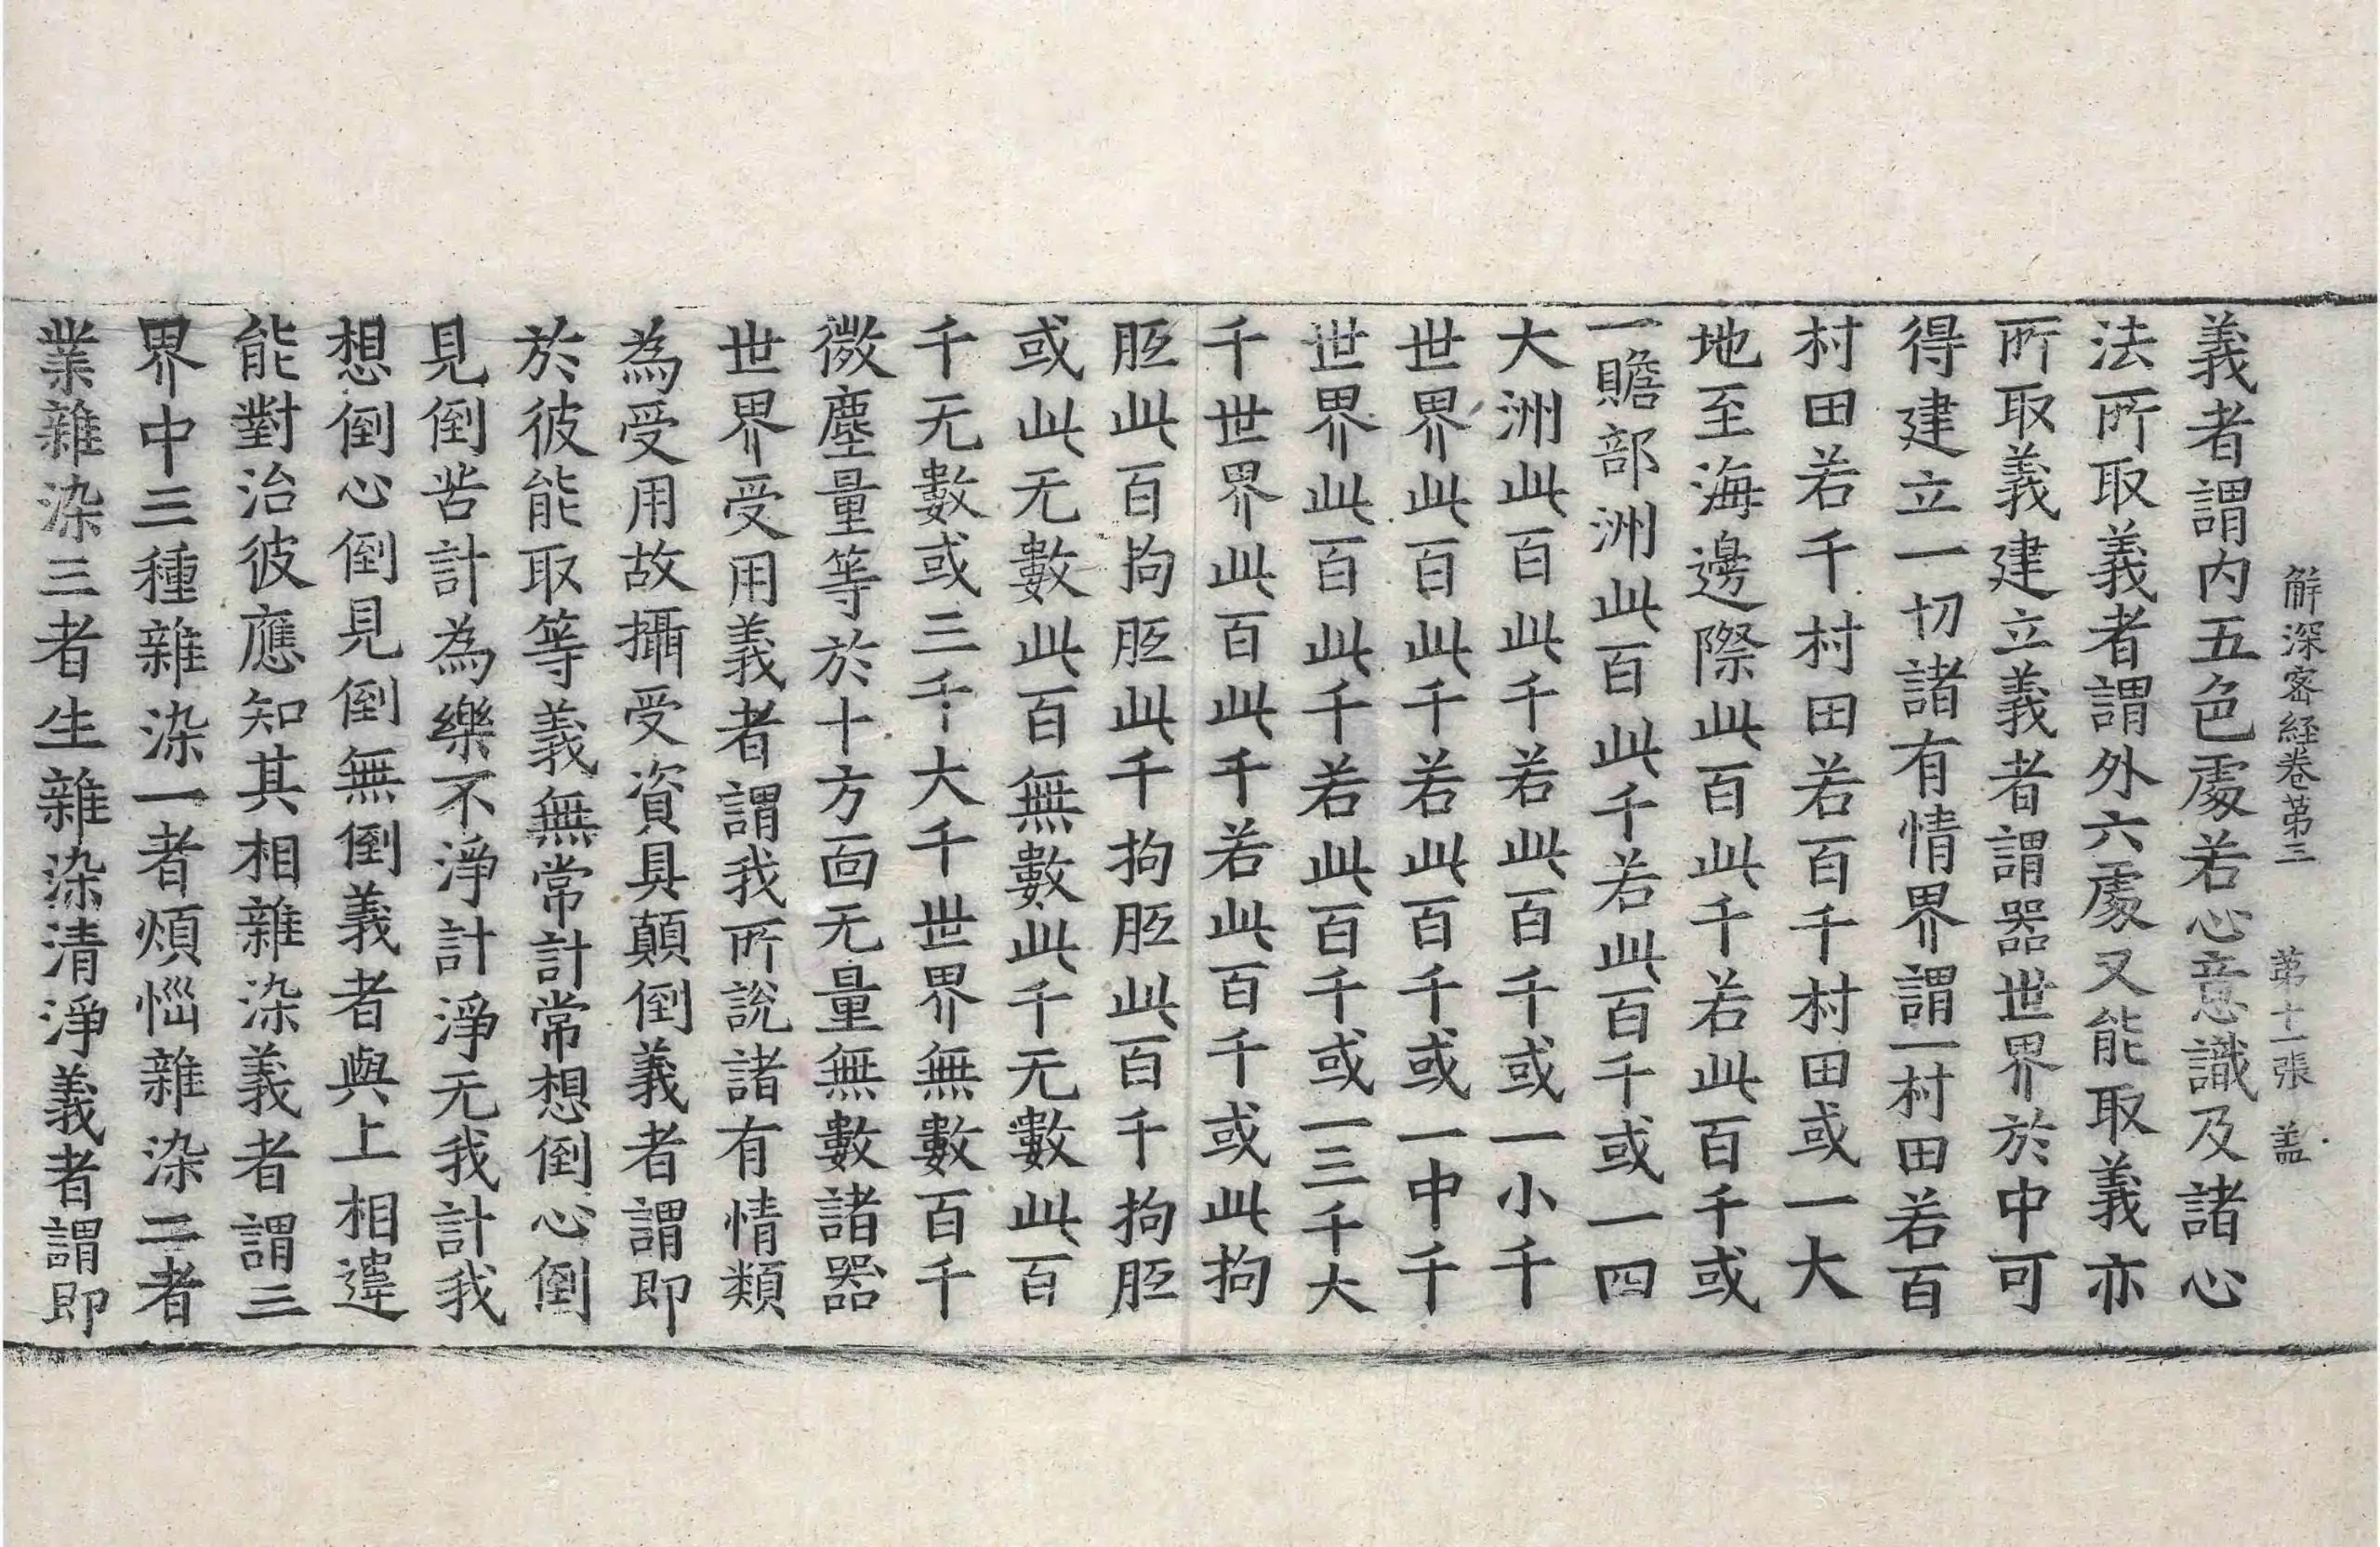 解深密経卷苐三　苐十一張　盖
義者謂内五色處若心意識及諸心
法所取義者謂外六處又能取義亦
所取義建立義者謂器世界於中可
得建立一切諸有情界謂一村田若百
村田若千村田若百千村田或一大
地至海邊際此百此千若此百千或
一贍部洲此百此千若此百千或一四
大洲此百此千若此百千或一小千
世界此百此千若此百千或一中千
世界此百此千若此百千或一三千大
千世界此百此千若此百千或此拘
胝此百拘胝此千拘胝此百千拘胝
或此无數此百無數此千无數此百
千无數或三千大千世界無數百千
微塵量等於十方面无量無數諸器
世界受用義者謂我所說諸有情類
為受用故攝受資具顛倒義者謂即
於彼能取等義無常計常想倒心倒
見倒苦計為樂不淨計淨无我計我
想倒心倒見倒無倒義者與上相違
能對治彼應知其相雜染義者謂三
界中三種雜染一者煩惱雜染二者
業雜染三者生雜染清淨義者謂即